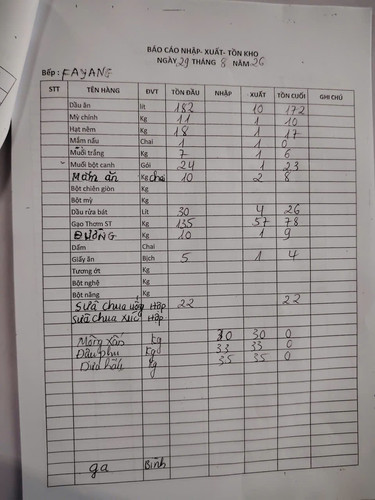 BÁO CÁO NHẬP- XUẤT- TỒN KHO
NGÀY 29 THÁNG 8 NĂM 26
Bếp : FAYANG
STT TÊN HÀNG ĐVT TỒN ĐẦU NHẬP XUẤT TỒN CUỐI GHI CHÚ
Dầu ăn lít 182 10 172
Mỳ chính Kg 11 1 10
Hạt nêm Kg 18 1 17
Mắm nấu Chai 1 1 0
Muối trắng Kg 7 1 6
Muối bột canh Gói 24 1 23
Mắm ăn Kg chai 10 2 8
Bột chiên giòn Kg
Bột mỳ Kg
Dầu rửa bát Lít 30 4 26
Gạo Thơm ST Kg 135 57 78
ĐƯỜNG Kg 10 1 9
Dấm Chai
Giấy ăn Bịch 5 1 4
Tương ớt Kg
Bột nghệ Kg
Bột năng Kg
Sữa chua uống Hộp 22 22
Sữa chua xúc Hộp
Kg 30 30 0
Đậu phụ Kg 33 33 0
Kg 35 35 0
ga Bình